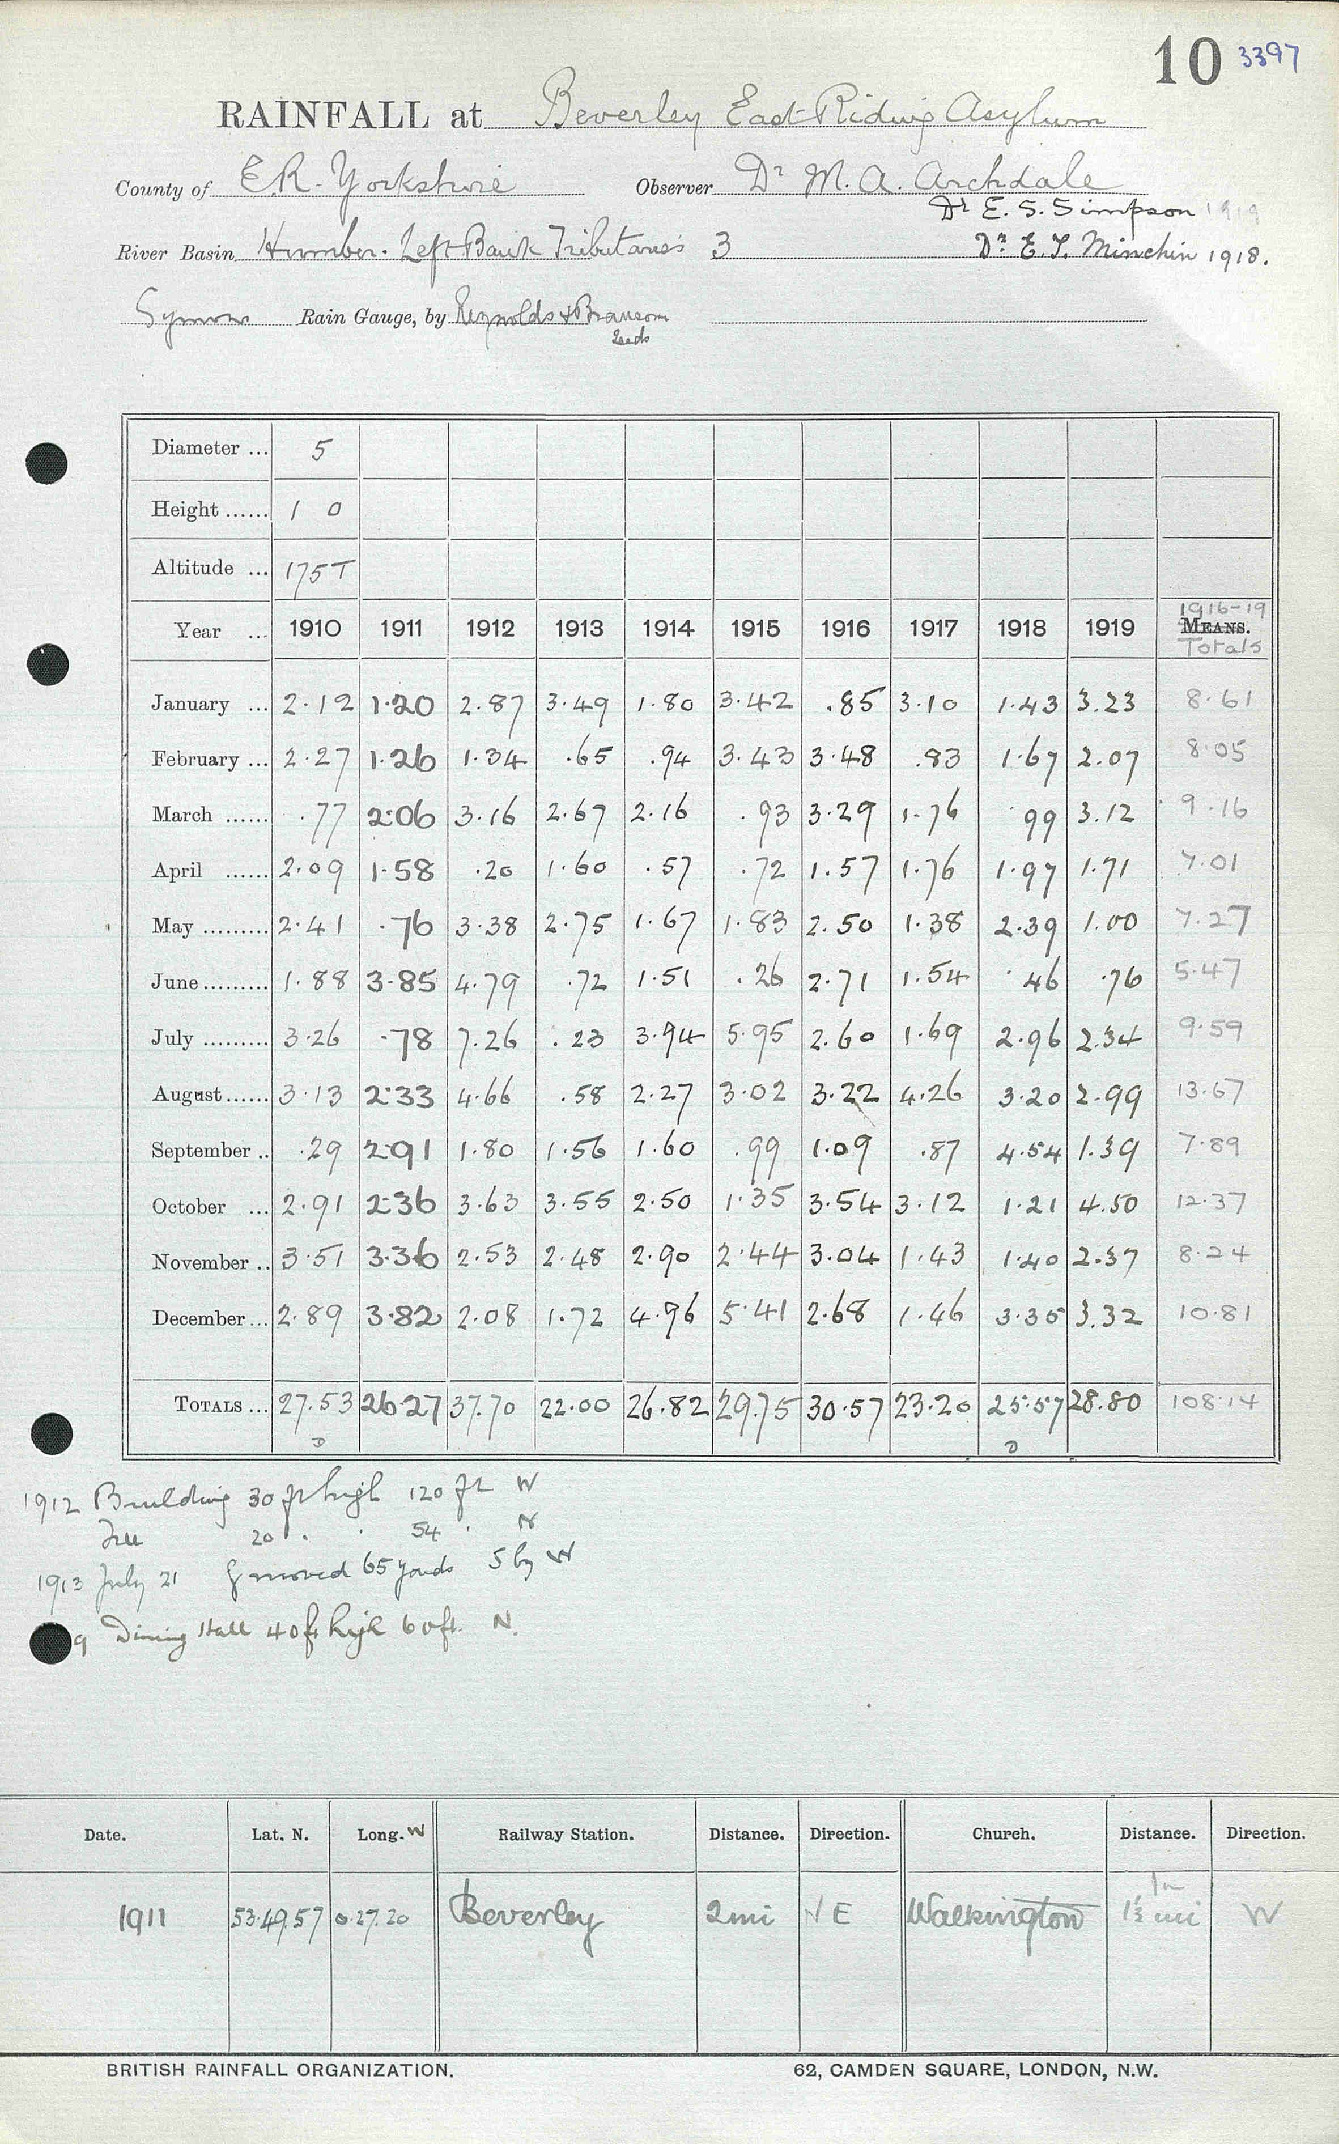 10 3397
RAINFALL at Beverley East Riding Asylum
County of E.R. Yorkshire Observer Dr M. A. Archdale
Dr E. S. Simpson 1919
River Basin Humber. Left Bank Tributaries 3 Dr. E. T. Minchin 1918.
Symons Rain Gauge, by Reynolds & Branson
Leeds
Diameter ... 5
Height ...... 1 0
Altitude ... 175T
1916-19
Year ... 1910 1911 1912 1913 1914 1915 1916 1917 1918 1919 MEANS.
Totals
January ... 2.12 1.20 2.87 3.49 1.80 3.42 .85 3.10 1.43 3.23 8.61
February ... 2.27 1.26 1.34 .65 .94 3.43 3.48 .83 1.67 2.07 8.05
March ...... .77 2.06 3.16 2.67 2.16 .93 3.29 1.76 .99 3.12 9.16
April ...... 2.09 1.58 .20 1.60 .57 .72 1.57 1.76 1.97 1.71 7.01
May ......... 2.41 .76 3.38 2.75 1.67 1.83 2.50 1.38 2.39 1.00 7.27
June ......... 1.88 3.85 4.79 .72 1.51 .26 2.71 1.54 .46 .76 5.47
July ......... 3.26 .78 7.26 .23 3.94 5.95 2.60 1.69 2.96 2.34 9.59
August ...... 3.13 2.33 4.66 .58 2.27 3.02 3.22 4.26 3.20 2.99 13.67
September .. .29 2.91 1.80 1.56 1.60 .99 1.09 .87 4.54 1.39 7.89
October ... 2.91 2.36 3.63 3.55 2.50 1.35 3.54 3.12 1.21 4.50 12.37
November .. 3.51 3.36 2.53 2.48 2.90 2.44 3.04 1.43 1.40 2.37 8.24
December ... 2.89 3.82 2.08 1.72 4.96 5.41 2.68 1.46 3.35 3.32 10.81
TOTALS ... 27.53 26.27 37.70 22.00 26.82 29.75 30.57 23.20 25.57 28.80 108.14
D D
1912 Building 30 ft high 120 ft W
Tree 20 " " 54 " N
1913 July 21 G moved 65 yards S by W
9 Dining Hall 40ft high 60ft. N.
Date. Lat. N. Long. W Railway Station. Distance. Direction. Church. Distance. Direction.
1911 53.49.57 0.27.20 Beverley 2mi NE Walkington 1½ mi W
BRITISH RAINFALL ORGANIZATION. 62, CAMDEN SQUARE, LONDON, N.W.